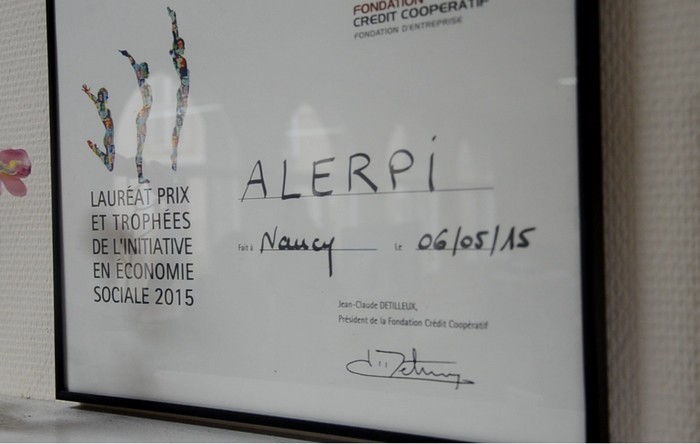 FONDATION
CRÉDIT COOPÉRATIF
FONDATION D'ENTREPRISE
LAURÉAT PRIX
ET TROPHÉES
DE L'INITIATIVE
EN ÉCONOMIE
SOCIALE 2015
ALERPi
Fait à Nancy Le 06/05/15
Jean-Claude DETILLEUX,
Président de la Fondation Crédit Coopératif